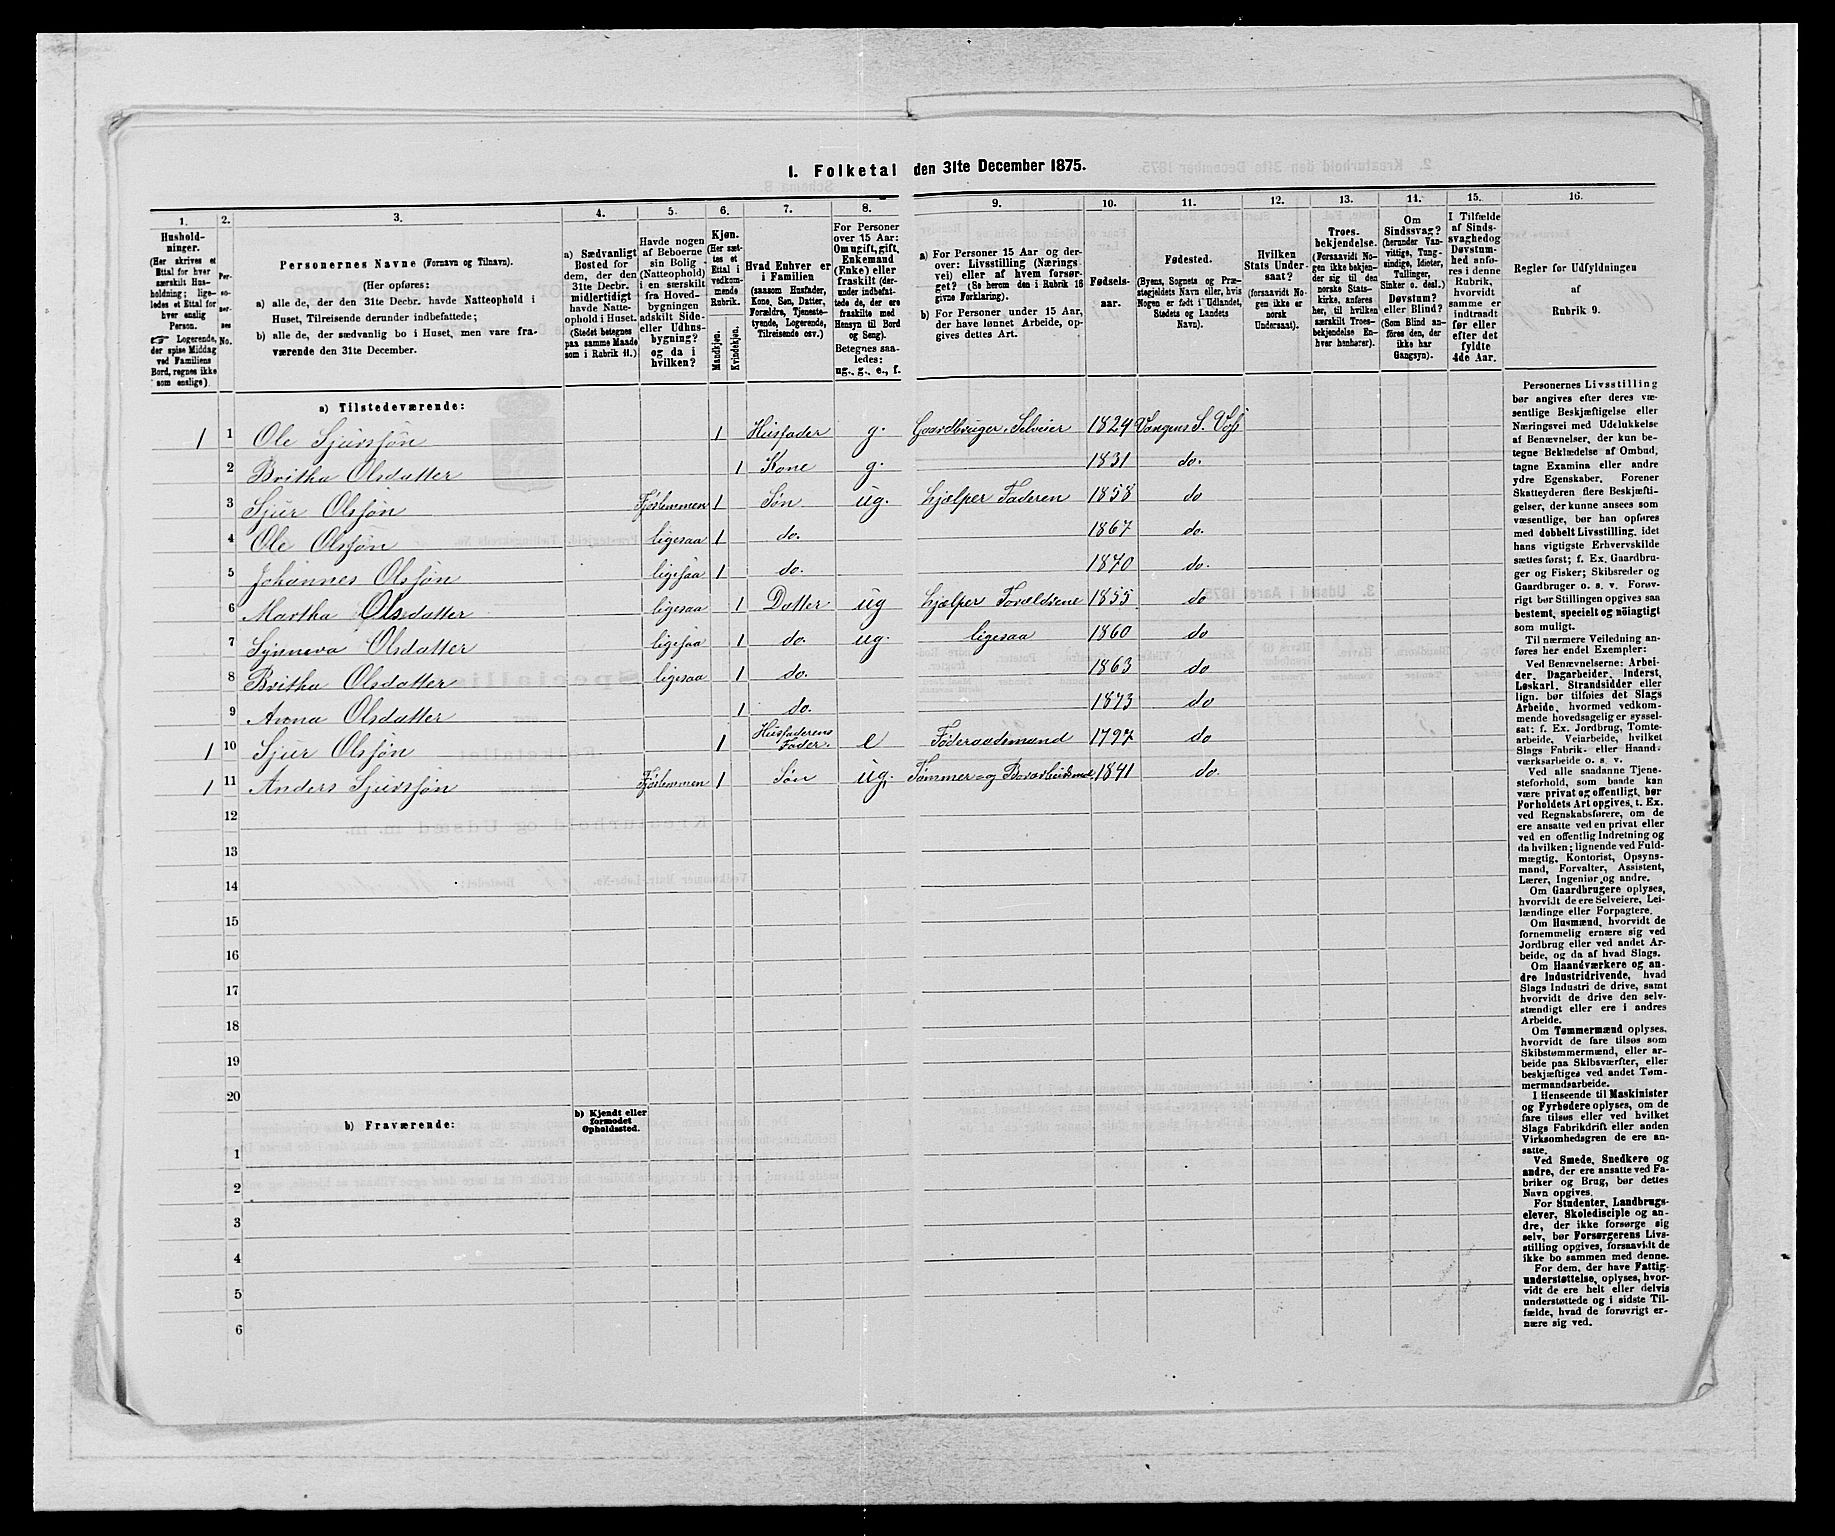 1. Folketal den 31te December 1875.
1. 2. 3. 4. 5. 6. 7. 8. 9. 10. 11. 12. 13. 14. 15. 16.
Hushold-
ninger.
(Her skrives et
Ettal for hver
særskilt Hus-
holdning; lige-
ledes et Ettal for
hver enslig
Person.
☞ Logerende,
der spise Middag
ved Familiens
Bord, regnes ikke
som enslige).
Per-
so-
ner-
nes
No.
Personernes Navne (Fornavn og Tilnavn).
(Her opføres:
a) alle de, der den 31te Decbr. havde Natteophold i
Huset, Tilreisende derunder indbefattede;
b) alle de, der sædvanlig bo i Huset, men vare fra-
værende den 31te December.
a) Sædvanligt
Bosted for
dem, der den
31te Decbr.
midlertidigt
havde Natte-
ophold i Huset.
(Stedet betegnes
paa samme Maade
som i Rubrik 11.)
Havde nogen
af Beboerne
sin Bolig
(Natteophold)
i en særskilt
fra Hoved-
bygningen
adskilt Side-
eller Udhus-
bygning?
og da i
hvilken?
Kjøn.
(Her sæt-
tes et
Ettal i
vedkom-
mende
Rubrik.
Mandkjøn.
Kvindekjøn.
Hvad Enhver er
i Familien
(saasom Husfader,
Kone, Søn, Datter,
Forældre, Tjeneste-
tyende, Logerende,
Tilreisende osv.)
For Personer
over 15 Aar:
Om ugift, gift,
Enkemand
(Enke) eller
fraskilt (der-
under indbefat-
tede de, der ere
fraskilte med
Hensyn til Bord
og Seng).
Betegnes saa-
ledes:
ug., g., e., f.
a) For Personer 15 Aar og der-
over: Livsstilling (Nærings-
vei) eller af hvem forsør-
get? (Se herom den i Rubrik 16
givne Forklaring).
b) For Personer under 15 Aar,
der have lønnet Arbeide, op-
gives dettes Art.
Fødsels-
aar.
Fødested.
(Byens, Sognets og Præ-
stegjeldets Navn eller, hvis
Nogen er født i Udlandet,
Stedets og Landets
Navn).
Hvilken
Stats Under-
saat?
(forsaavidt No-
gen ikke er
norsk
Undersaat).
Troes-
bekjendelse.
(Forsaavidt No-
gen ikke bekjen-
der sig til den
norske Stats-
kirke, anføres
her, til hvilken
særskilt Troes-
bekjendelse En-
hver henhører).
Om
Sindssvag?
(herunder Van-
vittige, Tung-
sindige, Idioter,
Tullinger,
Sinker o. desl.)
Døvstum?
eller Blind?
(Som Blind an-
føres den, der
ikke har
Gangsyn).
I Tilfælde
af Sinds-
svaghed og
Døvstum-
hed anfø-
res i denne
Rubrik,
hvorvidt
samme er
indtraadt
før eller
efter det
fyldte
4de Aar.
Regler for Udfyldningen
af
Rubrik 9.
a) Tilstedeværende:
1 1 Ole Sjursjøn 1 Husfader g. Gaardbruger, Selveier 1824 Vangens S. Voß
2 Britha Olsdatter 1 Kone g. 1831 do.
3 Sjur Olsjøn Fjøslemmen 1 Søn ug. hjælper Faderen 1858 do
4 Ole Olsjøn ligesaa 1 do. 1867 do.
5 Johannes Olsjøn ligesaa 1 do. 1870 do.
6 Martha Olsdatter ligesaa 1 Datter ug hjælper Forældrene 1855 do
7 Synneva Olsdatter ligesaa 1 do. ug. ligesaa 1860 do
8 Britha Olsdatter ligesaa 1 do. 1863 do
9 Anna Olsdatter 1 do. 1873 do
1 10 Sjur Olsjøn 1 Husfaderens Fader. e Føderaadsmand 1797 do
1 11 Anders Sjursjøn Fjøslemmen 1 Søn ug. Tømmer og 1841 do.
12
13
14
15
16
17
18
19
20
b) Fraværende:
b) Kjendt eller
formodet
Opholdssted.
1
2
3
4
5
6
Personernes Livsstilling
bør angives efter deres væ-
sentlige Beskjæftigelse eller
Næringsvei med Udelukkelse
af Benævnelser, der kun be-
tegne Beklædelse af Ombud,
tagne Examina eller andre
ydre Egenskaber. Forener
Skatteyderen flere Beskjæfti-
gelser, der kunne ansees som
væsentlige, bør han opføres
med dobbelt Livsstilling, idet
hans vigtigste Erhvervskilde
sættes først; f. Ex. Gaardbru-
ger og Fisker; Skibsreder og
Gaardbruger o. s. v. Forøv-
rigt bør Stillingen opgives saa
bestemt, specielt og nøiagtigt
som muligt.
Til nærmere Veiledning an-
føres her endel Exempler:
Ved Benævnelserne: Arbei-
der, Dagarbeider, Inderst,
Løskarl, Strandsidder eller
lign. bør tilføies det Slags
Arbeide, hvormed vedkom-
mende hovedsagelig er syssel-
sat; f. Ex. Jordbrug, Tomte-
arbeide, Veiarbeide, hvilket
Slags Fabrik- eller Haand-
værksarbeide o. s. v.
Ved alle saadanne Tjene-
steforhold, som baade kan
være privat og offentligt, bør
Forholdets Art opgives, t. Ex.
ved Regnskabsførere, om de
ere ansatte ved en privat eller
ved en offentlig Indretning og
da hvilken; lignende ved Fuld-
mægtig, Kontorist, Opsyns-
mand, Forvalter, Assistent,
Lærer, Ingeniør og andre.
Om Gaardbrugere oplyses,
hvorvidt de ere Selveiere, Lei-
lændinge eller Forpagtere.
Om Husmænd, hvorvidt de
fornemmelig ernære sig ved
Jordbrug eller ved andet Ar-
beide, og da af hvad Slags.
Om Haandværkere og an-
dre Industridrivende, hvad
Slags Industri de drive, samt
hvorvidt de drive den selv-
stændigt eller ere i andres
Arbeide.
Om Tømmermænd oplyses,
hvorvidt de fare tilsøs som
Skibstømmermænd, eller ar-
beide paa Skibsværfter, eller
beskjæftiges ved andet Tøm-
mermandsarbeide.
I Henseende til Maskinister
og Fyrbødere oplyses, om de
fare tilsøs eller ved hvilket
Slags Fabrikdrift eller anden
Virksomhedsgren de ere an-
satte.
Ved Smede, Snedkere og
andre, der ere ansatte ved Fa-
briker og Brug, bør dettes
Navn opgives.
For Studenter, Landbrugs-
elever, Skoledisciple og an-
dre, der ikke forsørge sig
selv, bør Forsørgerens Livs-
stilling opgives, forsaavidt de
ikke bo sammen med denne.
For dem, der have Fattig-
understøttelse, oplyses, hvor-
vidt de ere helt eller delvis
understøttede og i sidste Til-
fælde, hvad de forøvrigt er-
nære sig ved.